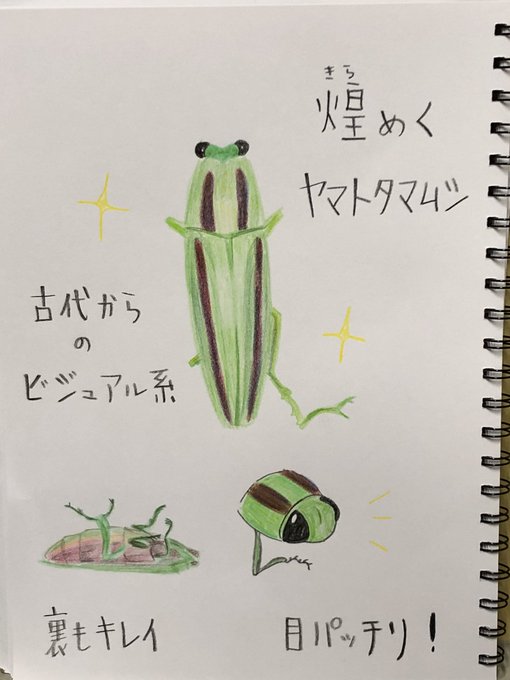 きら
煌めく
ヤマトタマムシ
古代から
の
ビジュアル系
裏もキレイ
目パッチリ!